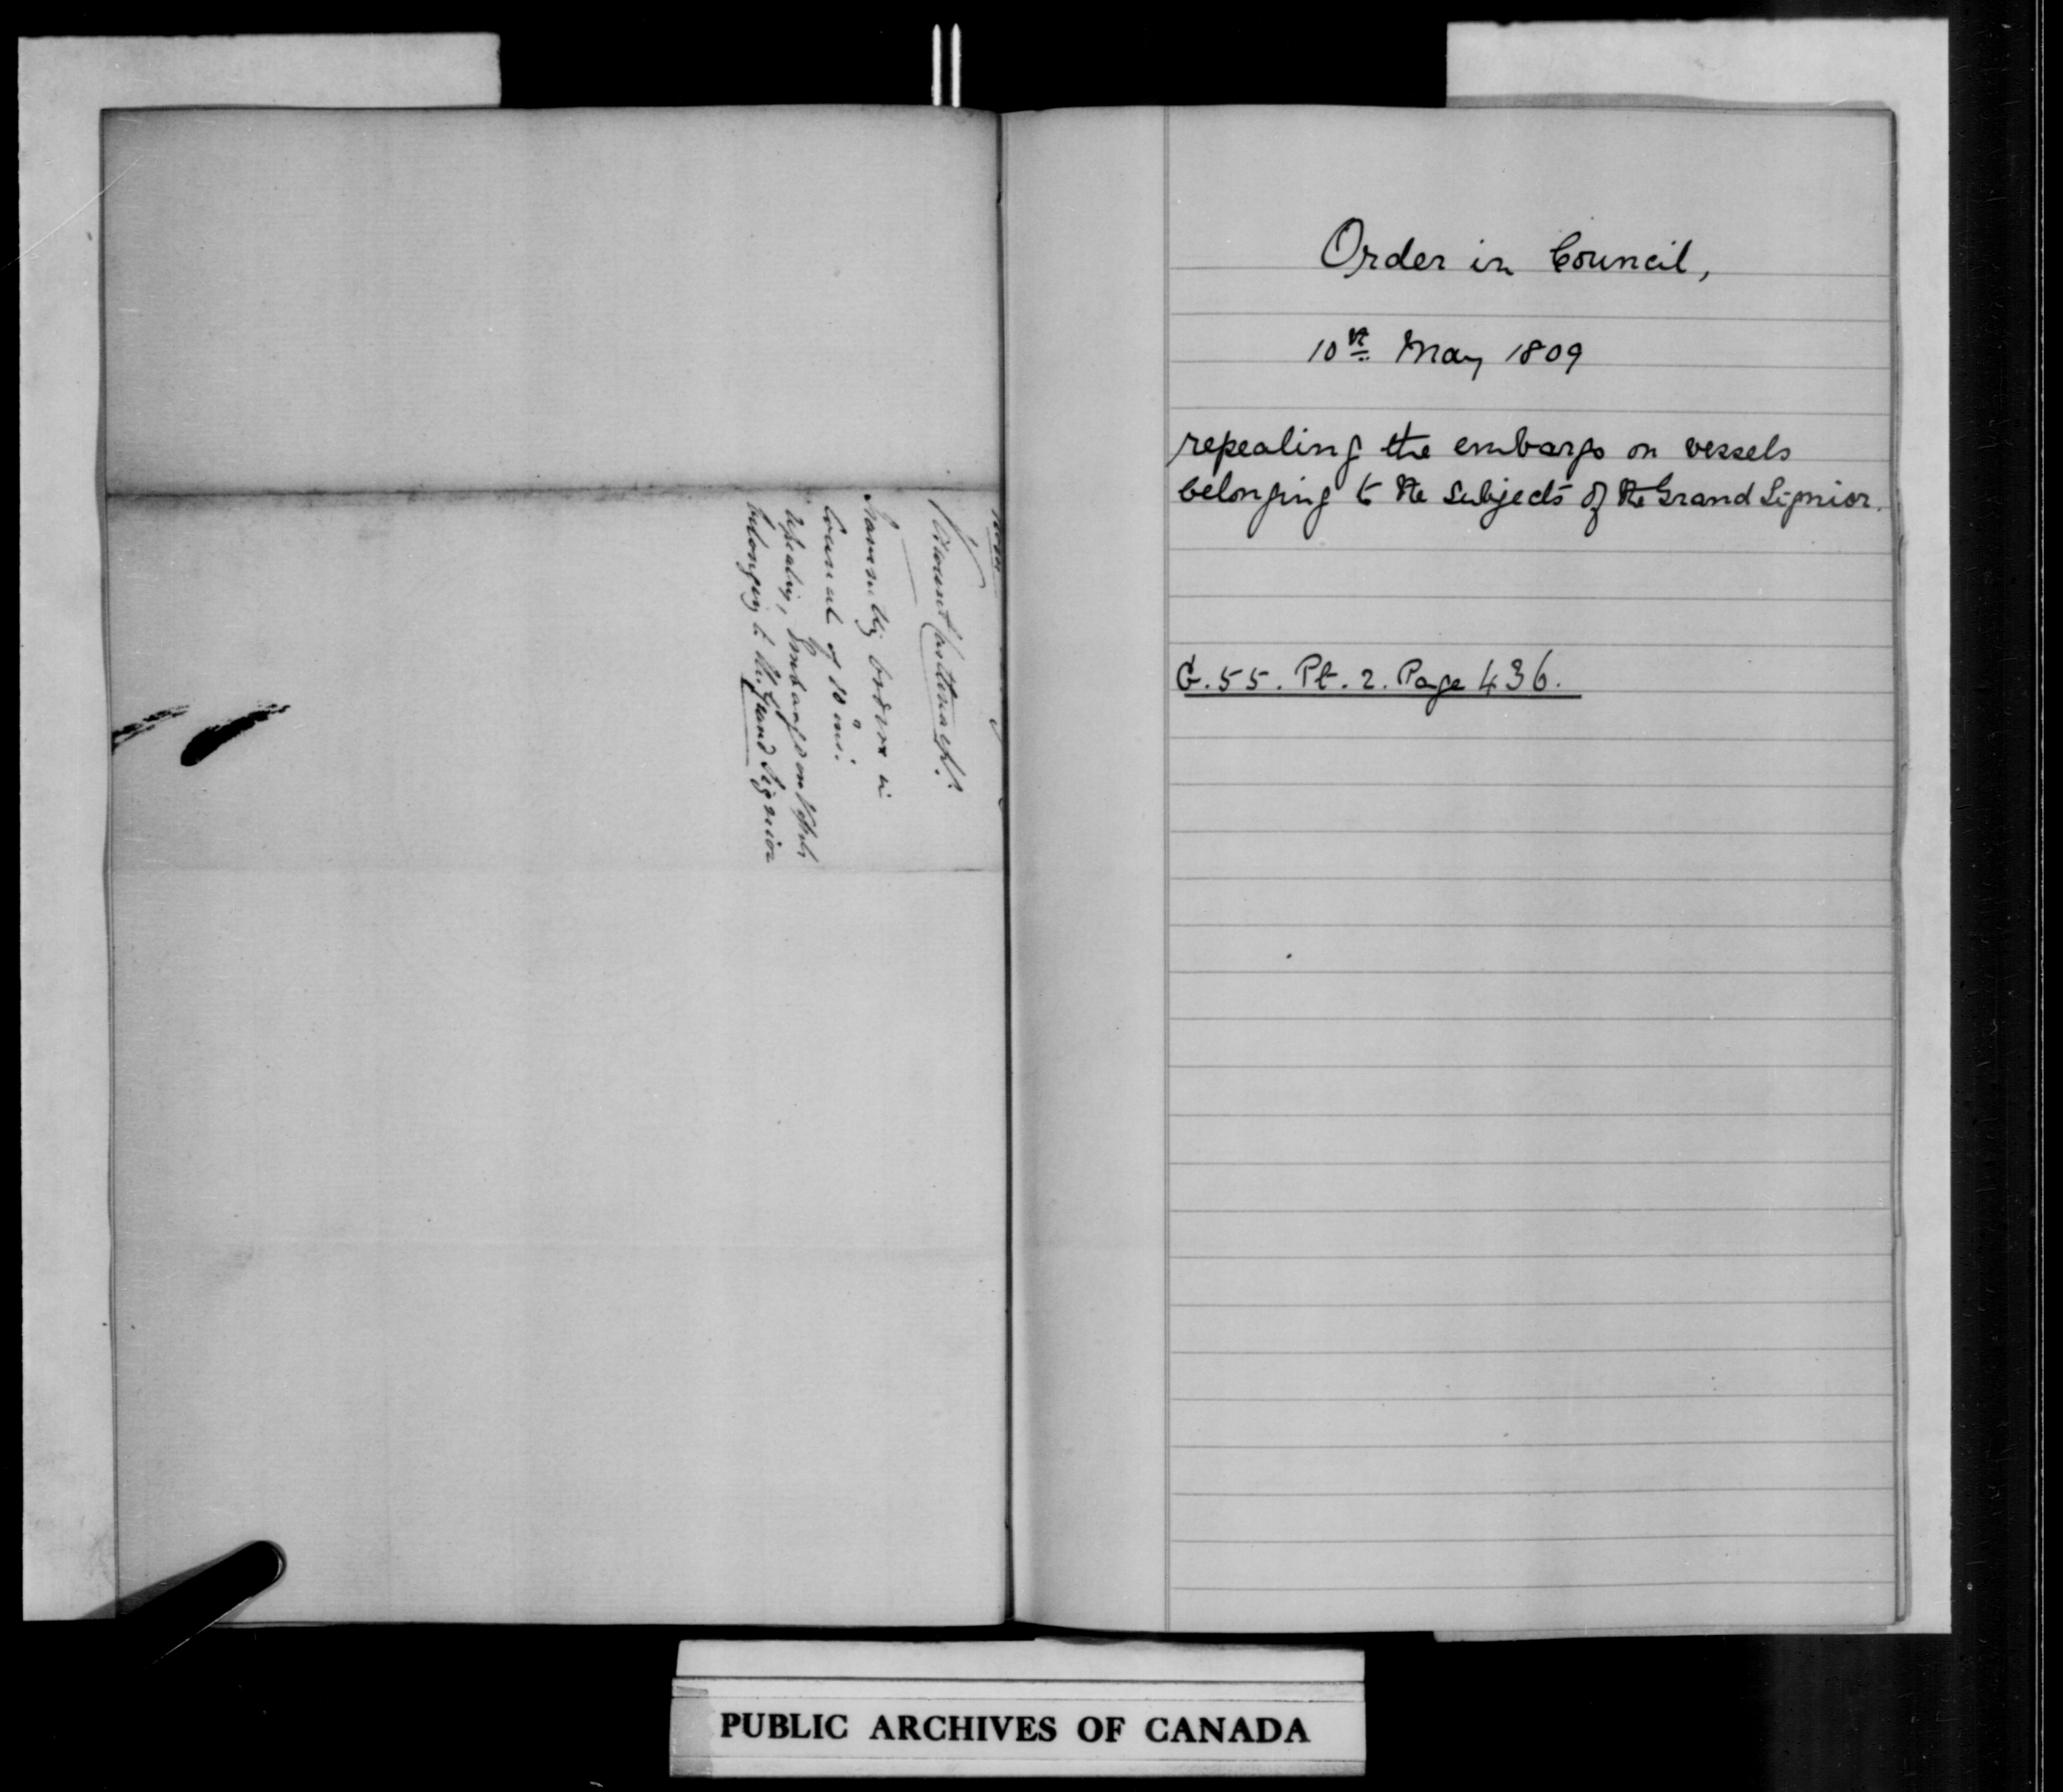 Viscount Castlereagh.
Transmittg Order in
Council of 10 ins:
repealing, Embargo on Vessels
belonging to the Grand Signior
Order in Council,
10th May 1809
repealing the embargo on vessels
belonging to the subjects of the Grand Signior.
G. 55. Pt. 2. Page 436.
PUBLIC ARCHIVES OF CANADA